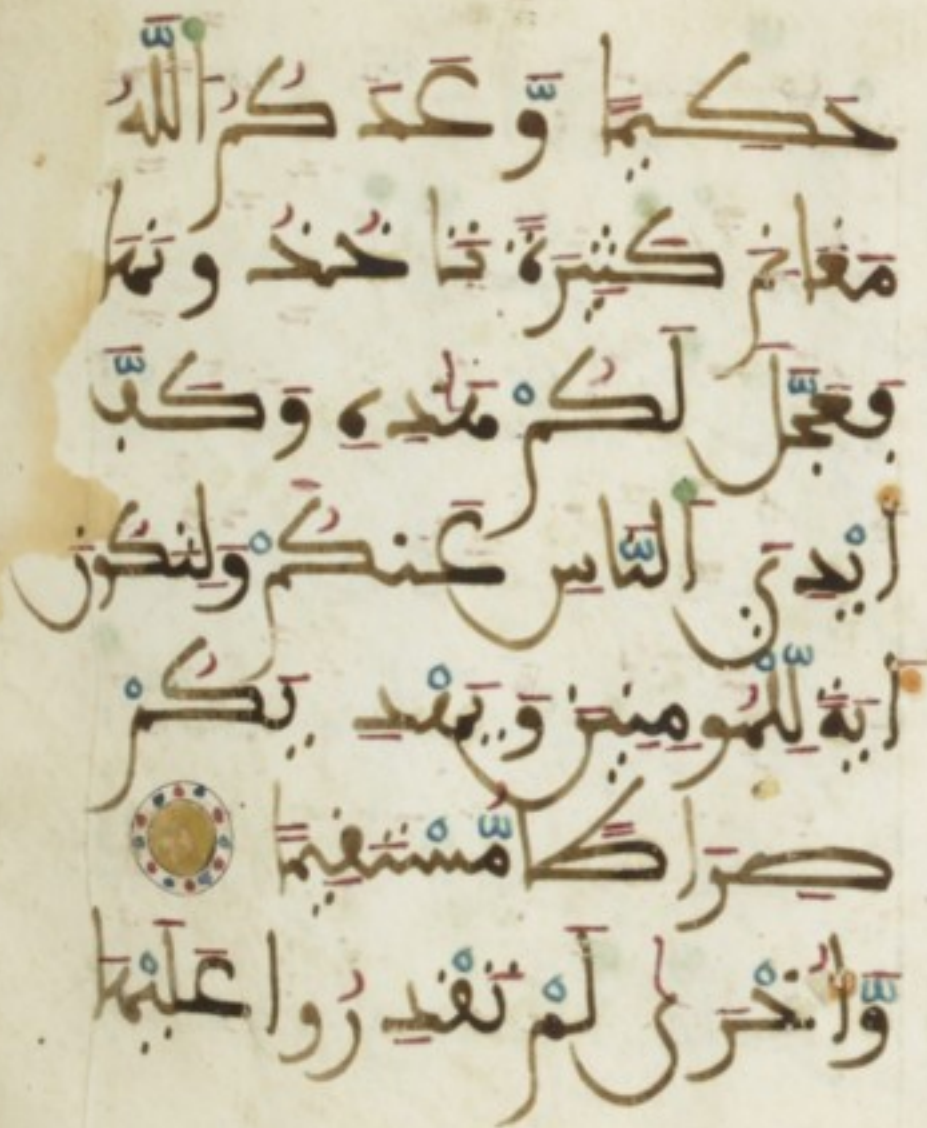 حَكِيمًا وَّعَدَكُمُ اَ۬للَّهُ
مَغَانِمَ كَثِيرَةً تَاخُذُونَهَا
فَعَجَّلَ لَكُمْ هَٰذِهِۦ وَكَفَّ
أَيْدِيَ اَ۬لنَّاسِ عَنكُمْ وَلِتَكُونَ
ءَايَةً لِّلْمُومِنِينَ وَيَهْدِيَكُمْ
صِرَاطًا مُّسْتَقِيمًا
وَّأُخْر۪يٰ لَمْ تَقْدِرُوا عَلَيْهَا